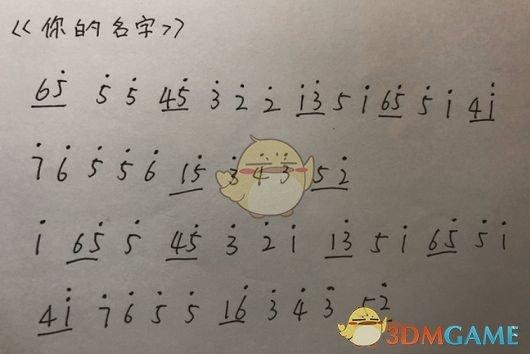 《你的名字》
65̇ 5̇ 5̇ 45̇ 3̇ 2̇ 2̇ 1̇3̇ 5 1̇ 65̇ 5̇ 1̇ 41̇
7̇ 6̇ 5̇ 5̇ 6̇ 15̇ 3̇ 4̇ 3̇ 52̇
1̇ 65̇ 5̇ 45̇ 3̇ 2̇ 1̇ 13̇ 5 1̇ 65̇ 5̇ 1̇
41̇ 7̇ 6̇ 5̇ 5̇ 16̇ 3̇ 4̇ 3̇ 52̇
3DMGAME